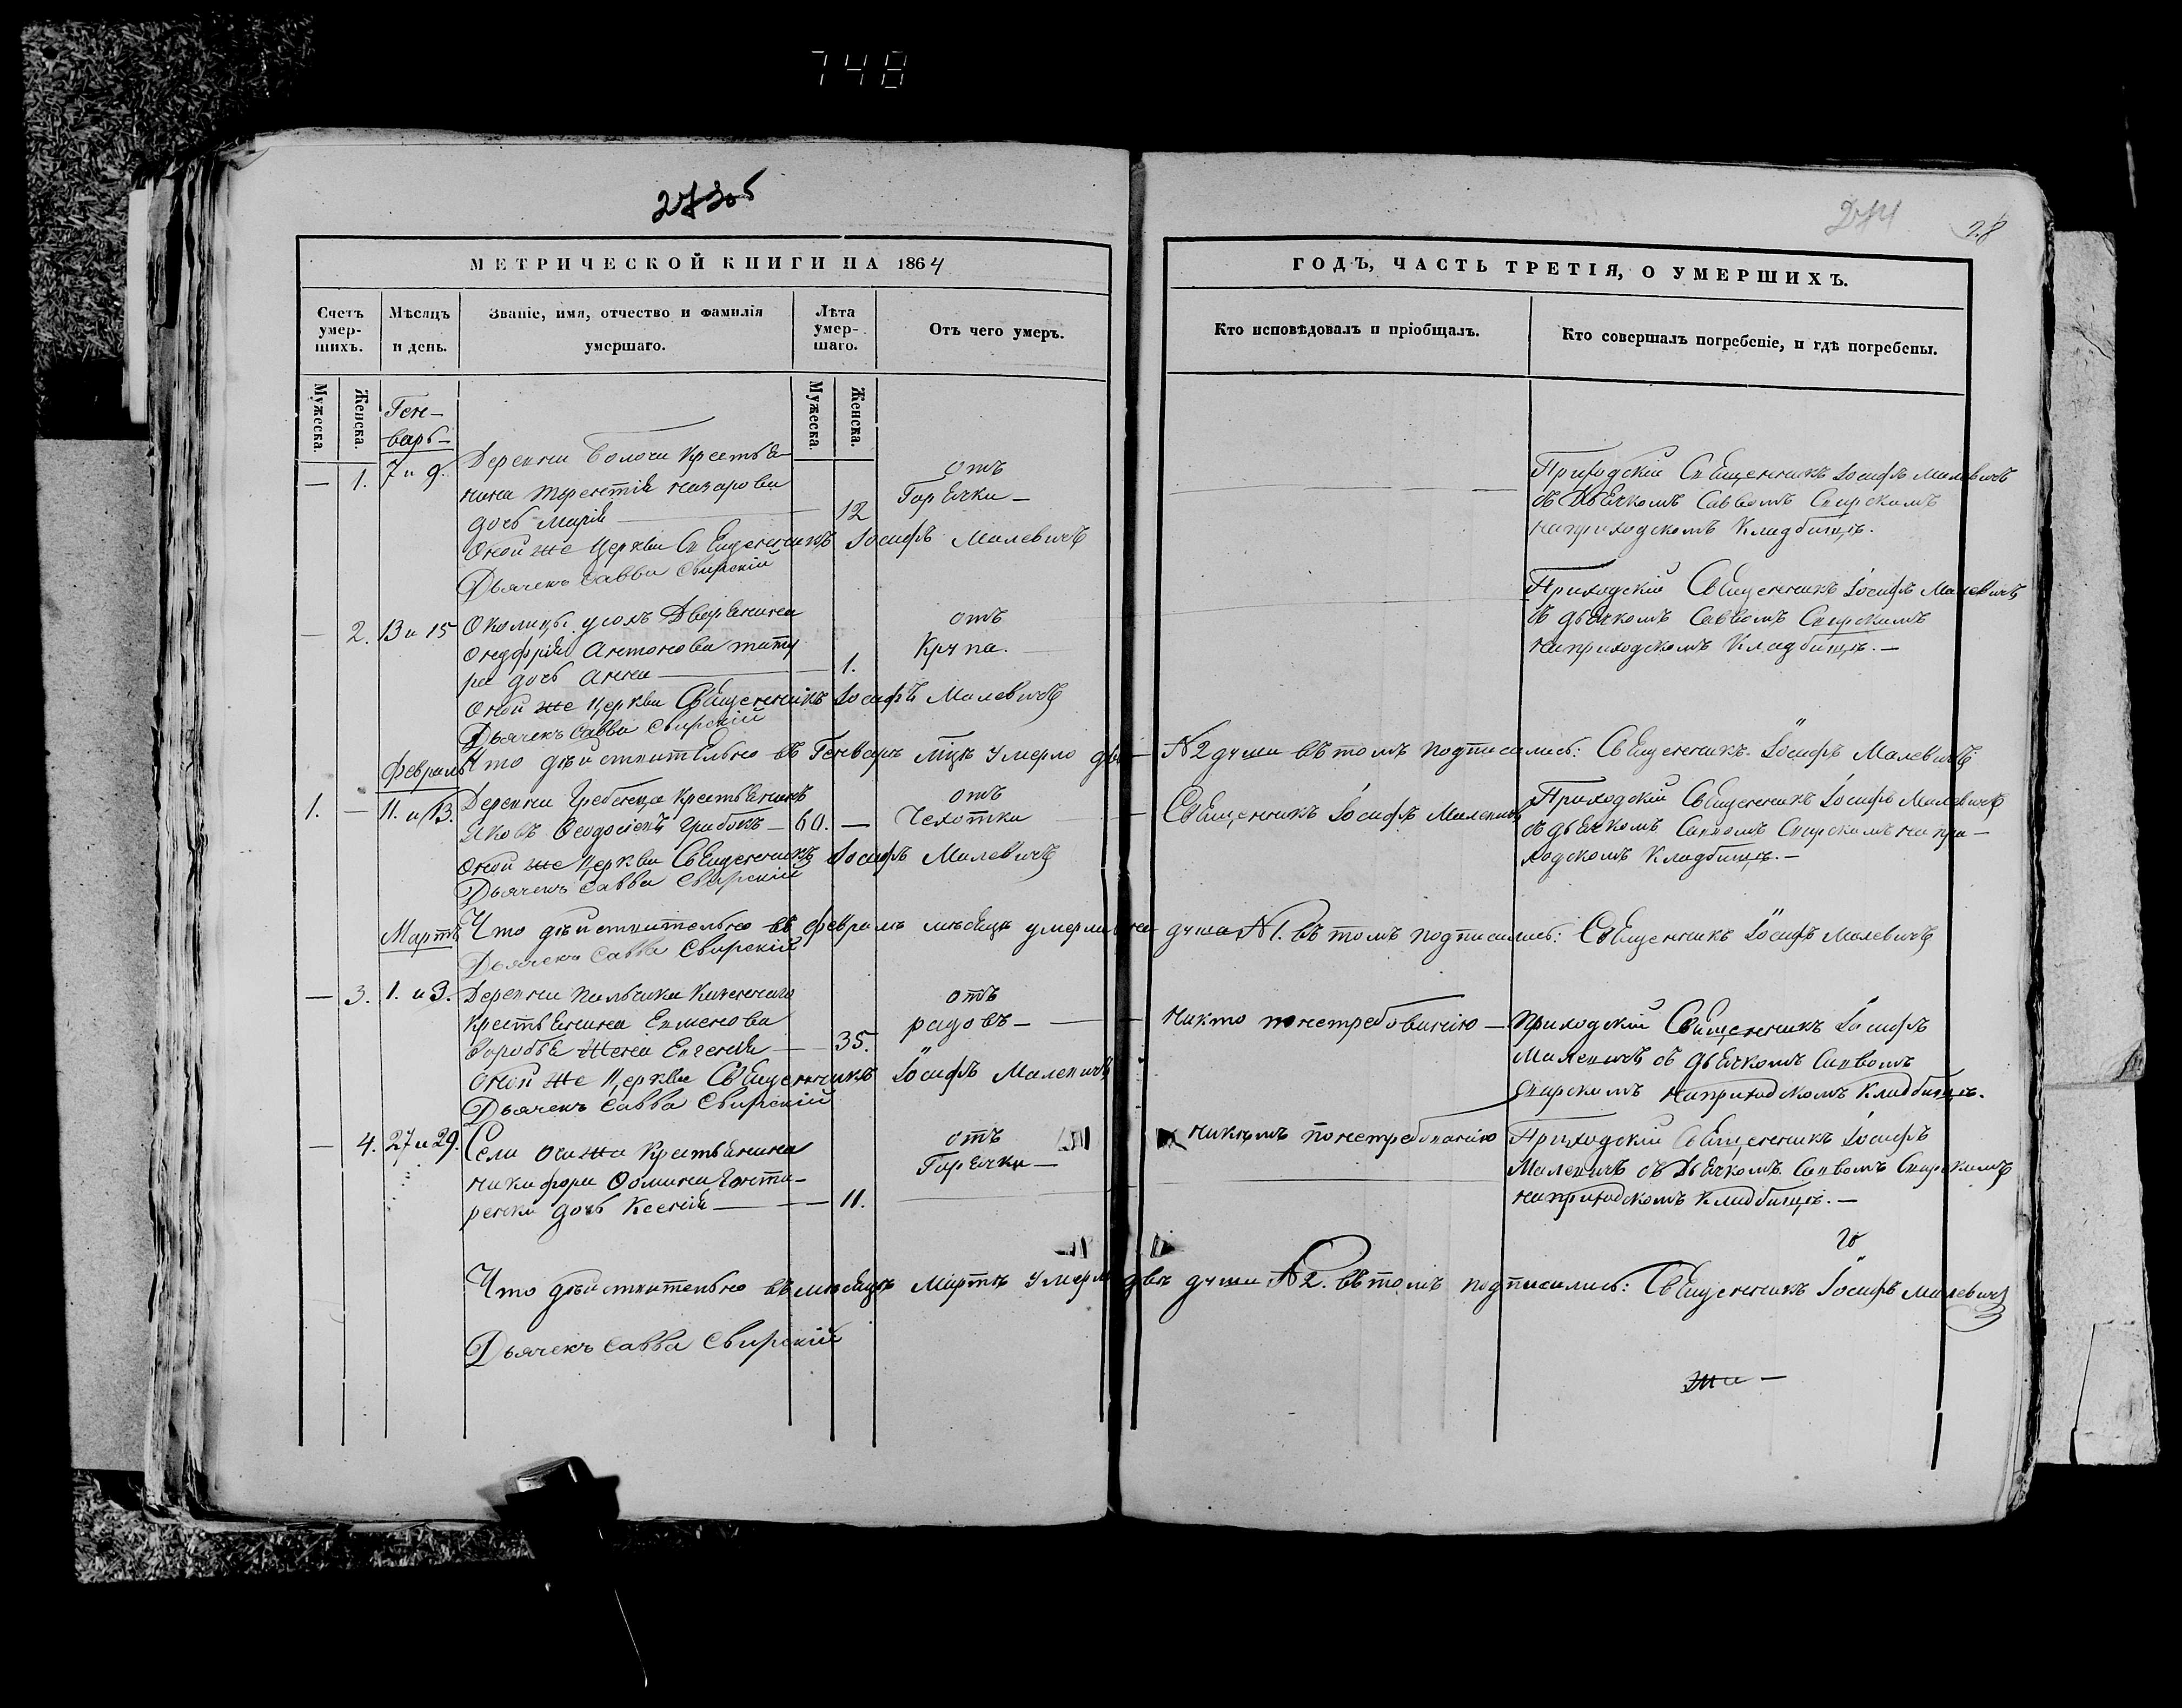 748
273об
274
28
МЕТРИЧЕСКОЙ КНИГИ НА 1864
Счетъ умер-шихъ.
Мѣсяцъ и день.
Званіе, имя, отчество и фамилія умершаго.
Лѣта умер-шаго.
Отъ чего умеръ.
Мужеска.
Женска.
Мужеска.
Женска.
Ген-
варь-
— 1. 7 и 9.
Деревни Болочи Крестья-
нина Терентія Назарова
дочь Марія — 12
отъ
Горячки —
Оной же Церкви Священникъ Іосифъ Малевичъ
Дьячекъ Савва Свирскій
— 2. 13 и 15
Околицы Дворянина
Онуфрія Антонова
ра дочь Анна — 1.
отъ
Крупа.
Оной же Церкви Священникъ Іосифъ Малевичъ
Дьячекъ Савва Свирскій
Февраль
Что дѣйствительно въ Генварѣ мцѣ умерло двѣ —
1. — 11. и 13.
Деревни Гребенца Крестьянинъ
Яковъ Ѳеодосіевъ Грибокъ — 60. —
отъ
Чахотки
Оной же Церкви Священникъ Іосифъ Малевичъ
Дьячекъ Савва Свирскій
Мартъ
Что дѣйствительно въ Февралѣ мѣсяцѣ умерла
Дьячекъ Савва Свирскій
— 3. 1. и 3.
Деревни Пальчика Казеннаго
Крестьянина
Воробья Жена Евгенія — 35.
отъ
родовъ —
Оной же Церкви Священникъ Іосифъ Малевичъ
Дьячекъ Савва Свирскій
— 4. 27 и 29.
Села Крестьянина
Никифора Ѳомина
дочь Ксенія — 11.
отъ
Горячки —
Что дѣйствительно въ мѣсяцѣ Мартѣ умерло двѣ
Дьячекъ Савва Свирскій
ГОДЪ, ЧАСТЬ ТРЕТІЯ, О УМЕРШИХЪ.
Кто исповѣдовалъ и пріобщалъ.
Кто совершалъ погребеніе, и гдѣ погребены.
Приходскій Священникъ Іосифъ Малевичъ
съ Дьячкомъ Саввомъ Свирскимъ
на приходскомъ Кладбищѣ.
Приходскій Священникъ Іосифъ Малевичъ
съ дьячкомъ Саввомъ Свирскимъ
на приходскомъ Кладбищѣ. —
№ 2 души въ томъ подписались: Священникъ Іосифъ Малевичъ
Священникъ Іосифъ Малевичъ
Приходскій Священникъ Іосифъ Малевичъ
съ дьячкомъ Саввомъ Свирскимъ на при-
ходскомъ Кладбищѣ. —
душа № 1. въ томъ подписались: Священникъ Іосифъ Малевичъ
никто по нетребованію —
Приходскій Священникъ Іосифъ
Малевичъ съ дьячкомъ Саввомъ
Свирскимъ на приходскомъ Кладбищѣ.
никѣмъ по нетребованію
Приходскій Священникъ Іосифъ
Малевичъ съ Дьячкомъ Саввомъ Свирскимъ
на приходскомъ Кладбищѣ. —
души № 2. въ томъ подписались: Священникъ Іосифъ Малевичъ